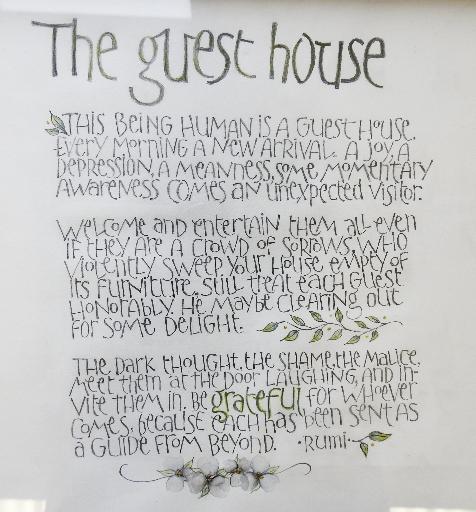 The guest house
THIS BEING HUMAN IS A GUEST HOUSE.
EVERY MORNING A NEW ARRIVAL. A JOY, A
DEPRESSION, A MEANNESS, SOME MOMENTARY
AWARENESS COMES AS AN UNEXPECTED VISITOR.
WELCOME AND ENTERTAIN THEM ALL. EVEN
IF THEY ARE A CROWD OF SORROWS, WHO
VIOLENTLY SWEEP YOUR HOUSE EMPTY OF
ITS FURNITURE, STILL TREAT EACH GUEST
HONORABLY. HE MAY BE CLEARING OUT
FOR SOME DELIGHT.
THE DARK THOUGHT, THE SHAME, THE MALICE.
MEET THEM AT THE DOOR LAUGHING, AND IN-
VITE THEM IN. BE grateful FOR WHOEVER
COMES, BECAUSE EACH HAS BEEN SENT AS
A GUIDE FROM BEYOND. ·RUMI·